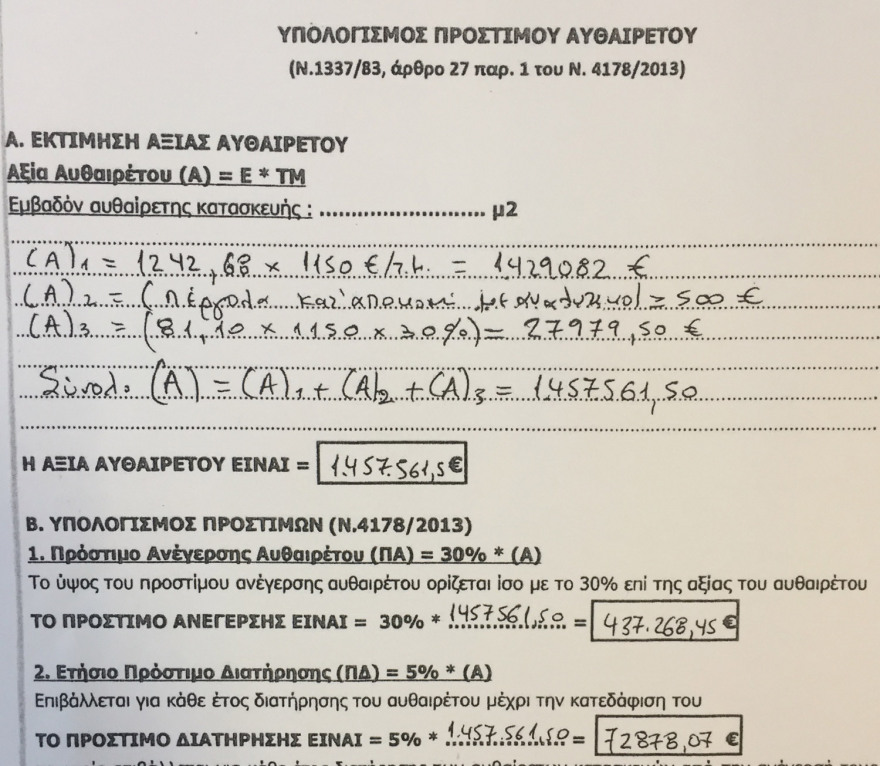 ΥΠΟΛΟΓΙΣΜΟΣ ΠΡΟΣΤΙΜΟΥ ΑΥΘΑΙΡΕΤΟΥ
(Ν.1337/83, άρθρο 27 παρ. 1 του Ν. 4178/2013)
Α. ΕΚΤΙΜΗΣΗ ΑΞΙΑΣ ΑΥΘΑΙΡΕΤΟΥ
Αξία Αυθαιρέτου (Α) = Ε * ΤΜ
Εμβαδόν αυθαίρετης κατασκευής : .......................... μ2
(Α)1 = 1242,68 x 1150 €/τ.μ. = 1429082 €
(Α)2 = (πέργολα κατ' αποκοπή = 500 €
(Α)3 = (81,10 x 1150 x 30%) = 27979,50 €
Σύνολο (Α) = (Α)1 + (Α)2 + (Α)3 = 1457561,50
Η ΑΞΙΑ ΑΥΘΑΙΡΕΤΟΥ ΕΙΝΑΙ = 1.457.561,5 €
Β. ΥΠΟΛΟΓΙΣΜΟΣ ΠΡΟΣΤΙΜΩΝ (Ν.4178/2013)
1. Πρόστιμο Ανέγερσης Αυθαιρέτου (ΠΑ) = 30% * (Α)
Το ύψος του προστίμου ανέγερσης αυθαιρέτου ορίζεται ίσο με το 30% επί της αξίας του αυθαιρέτου
ΤΟ ΠΡΟΣΤΙΜΟ ΑΝΕΓΕΡΣΗΣ ΕΙΝΑΙ = 30% * 1457561,50 = 437.268,45 €
2. Ετήσιο Πρόστιμο Διατήρησης (ΠΔ) = 5% * (Α)
Επιβάλλεται για κάθε έτος διατήρησης του αυθαιρέτου μέχρι την κατεδάφιση του
ΤΟ ΠΡΟΣΤΙΜΟ ΔΙΑΤΗΡΗΣΗΣ ΕΙΝΑΙ = 5% * 1.457.561,50 = 72878,07 €